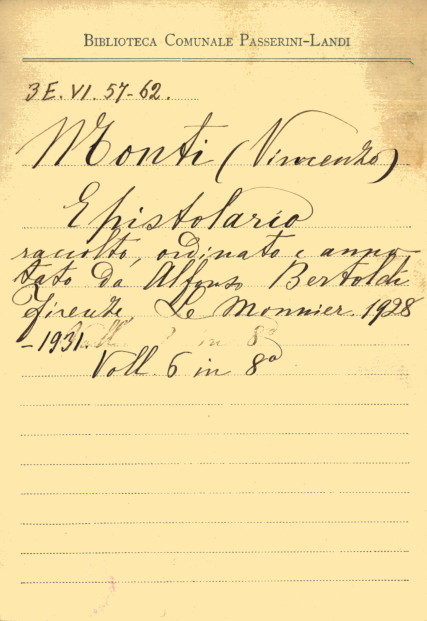 BIBLIOTECA COMUNALE PASSERINI-LANDI
3 E. VI. 57-62.
Monti (Vincenzo)
Epistolario
raccolto, ordinato e anno-
tato da Alfonso Bertoldi
Firenze, Le Monnier. 1928
-1931. in 8°
Voll. 6 in 8°